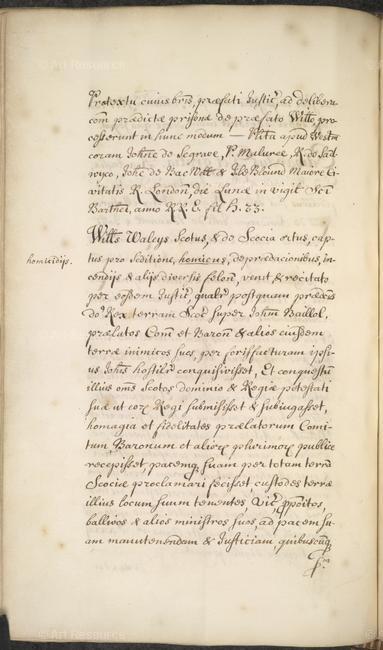 Pretextu cuius bris, præfati Justic, ad deliberac
com prædictæ prisonæ de præfato Willo, pro
cesserunt in hunc modum — Plita apud Westm
coram Johne de Segrave, P. Maluree, R. de Sad
wyco, Johe de Bacwell & Jho Blound Maiore Ci-
vitatis R. London, die Lunæ in vigil Sci
Barthei, anno RR. E. fil H. 33.
Wills Waleys Scotus, & de Scocia ortus, cap
tus pro seditione, homicus, depredacionibus, in
homicidijs.
cendijs & alijs diversis felon, venit, & recitato
per eosdem Justic, qualr postquam prædcus
dns Rex terram Scoc super Johem Baillol,
prælatos Com et Baron & alios eiusdem
terræ inimicos suos, per forisfacturam ipsi-
us Johis hostilr conquisivisset, Et conquestu
illius oms Scotos dominio & Regiæ potestati
suæ ut eorz Regi submisisset & subiugasset,
homagia et fidelitates prælatorum Comi-
tum, Baronum et aliorz plurimorz publice
recepisset, pacemq suam per totam terra
Scociæ proclamari fecisset custodes terræ
illius locum suum tenentes, Vic, ppositos,
ballivos & alios ministros suos, ad pacem su-
am manutenendam & Justiciam quibuscunq
© Art Resource
© Art Resource
© Art Resource